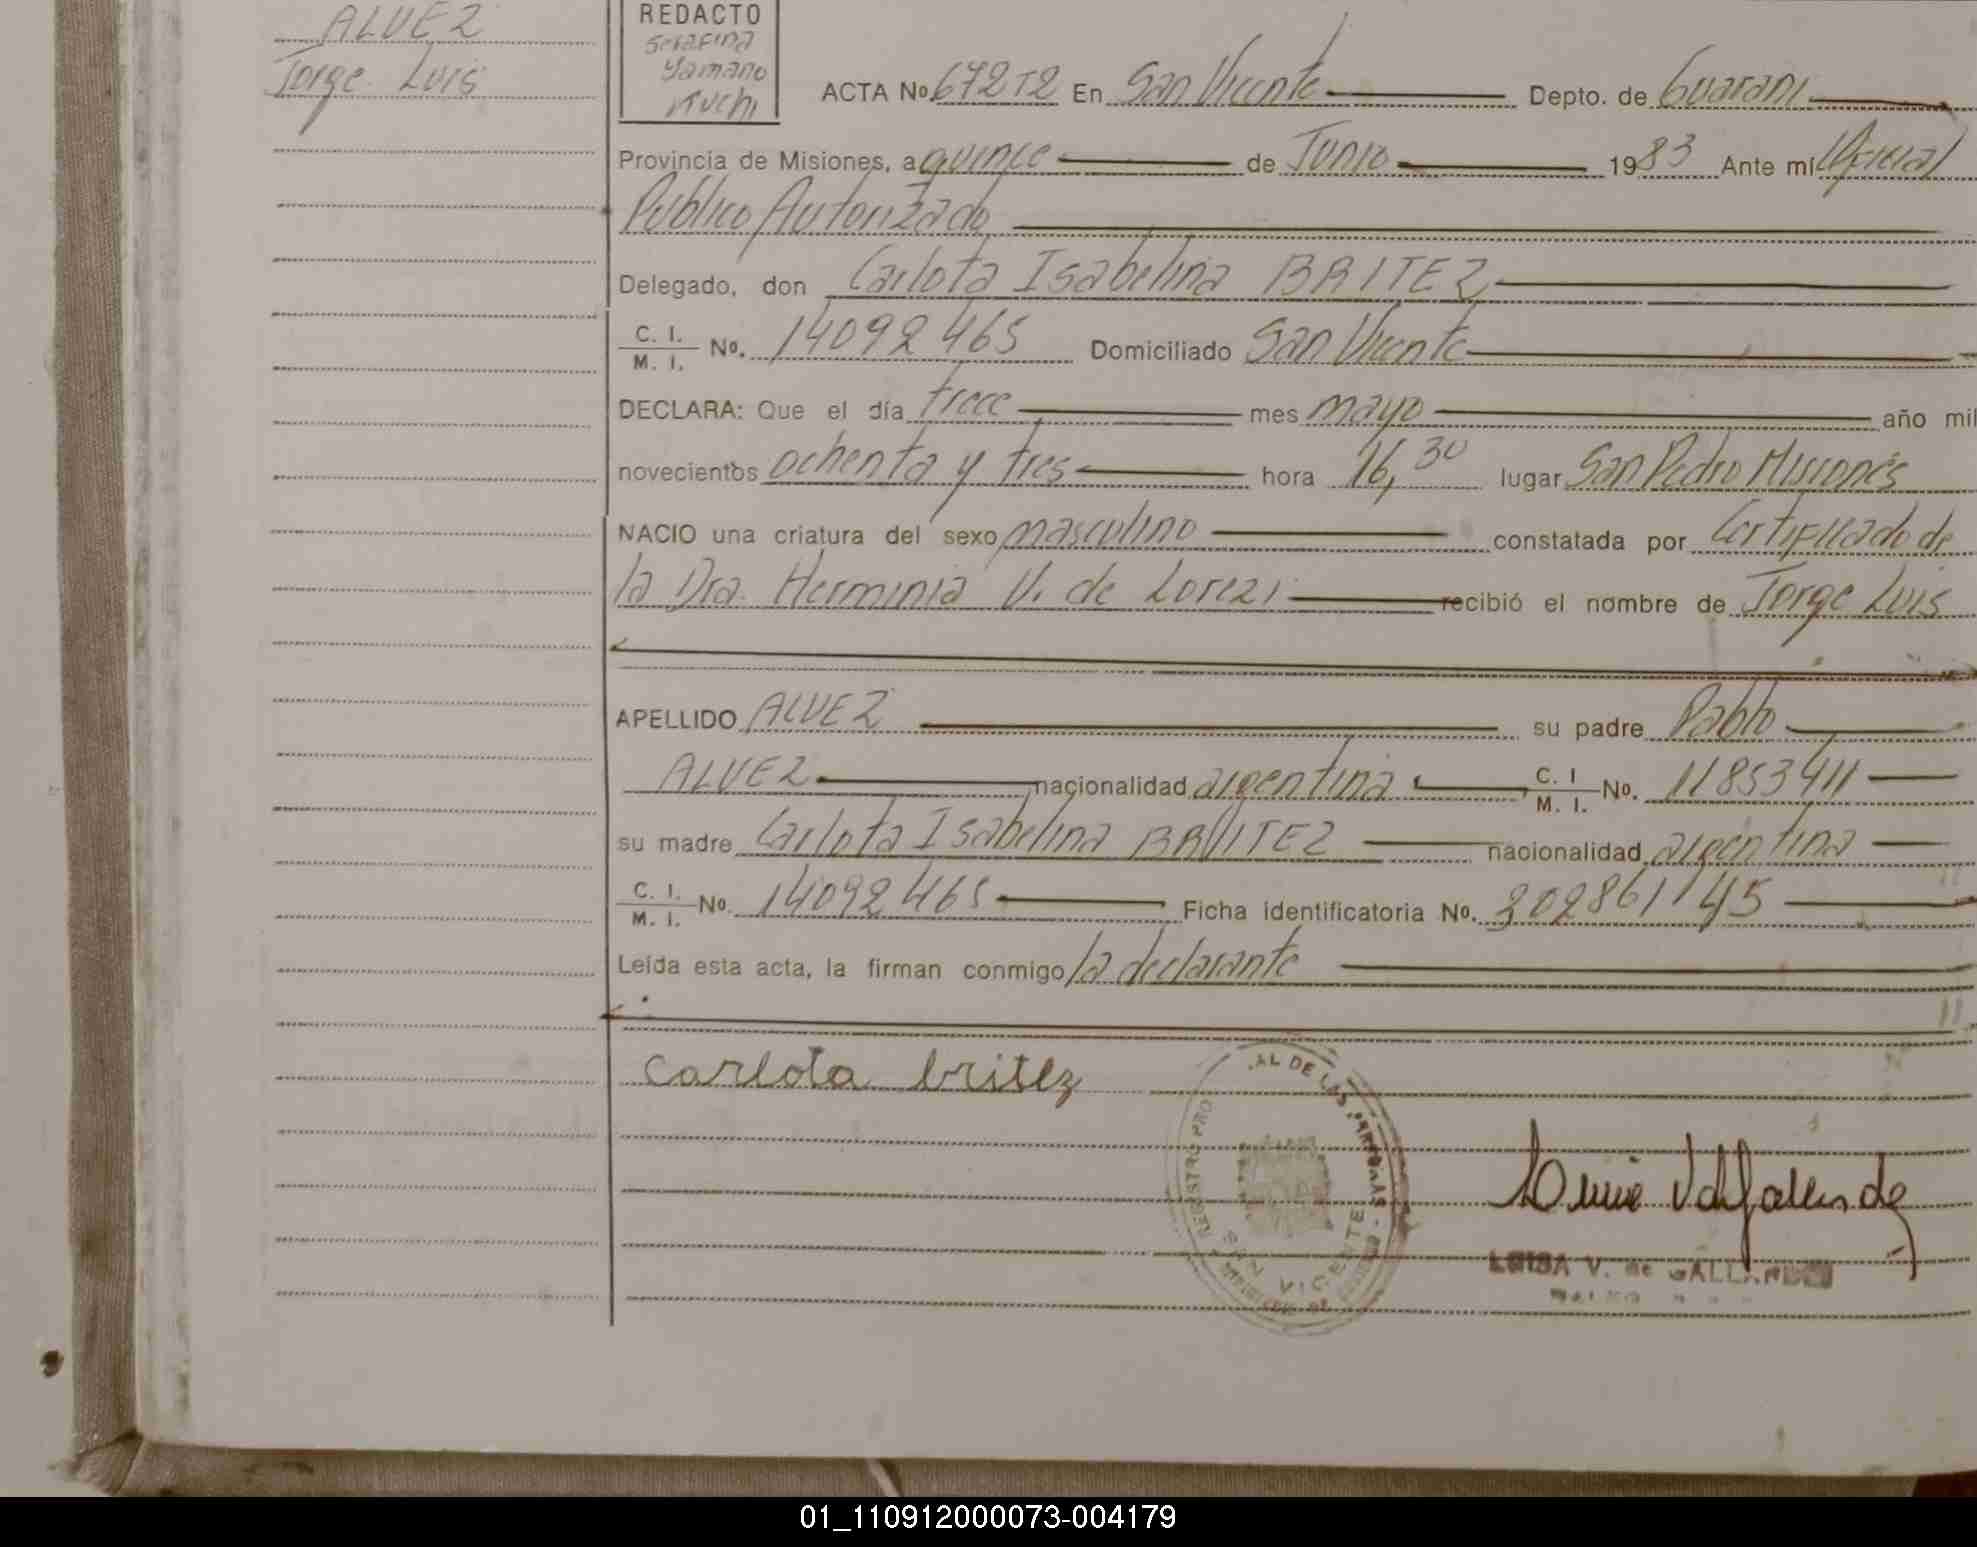 ALVEZ
Jorge Luis
REDACTO
Serafina
Yamano
Kuchi
ACTA No. 672T2 En San Vicente Depto. de Guarani
Provincia de Misiones, a quince de Junio 1983 Ante mí Oficial
Publico Autorizado
Delegado, don Carlota Isabelina BRITEZ
C. I. M. I. No. 14092465 Domiciliado San Vicente
DECLARA: Que el día trece mes mayo año mil
novecientos ochenta y tres hora 16,30 lugar San Pedro Misiones
NACIO una criatura del sexo masculino constatada por Certificado de
la Dra. Herminia V. de Lorezi recibió el nombre de Jorge Luis
APELLIDO ALVEZ su padre Pablo
ALVEZ nacionalidad argentina C. I M. I. No. 11853411
su madre Carlota Isabelina BRITEZ nacionalidad argentina
C. I. M. I. No. 14092465 Ficha identificatoria No. 202861145
Leída esta acta, la firman conmigo la declarante
carlota britez
REGISTRO PRO AL DE LAS PERSONAS
SAN VICENTE
LUISA V. de GALLARDO
01_110912000073-004179